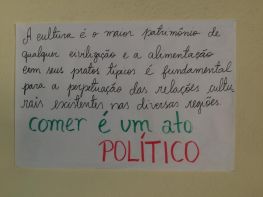 A cultura é o maior patrimônio de
qualquer civilização e a alimentação
com seus pratos típicos é fundamental
para a perpetuação das relações cultu
rais existentes nas diversas regiões.
comer é um ato
POLÍTICO